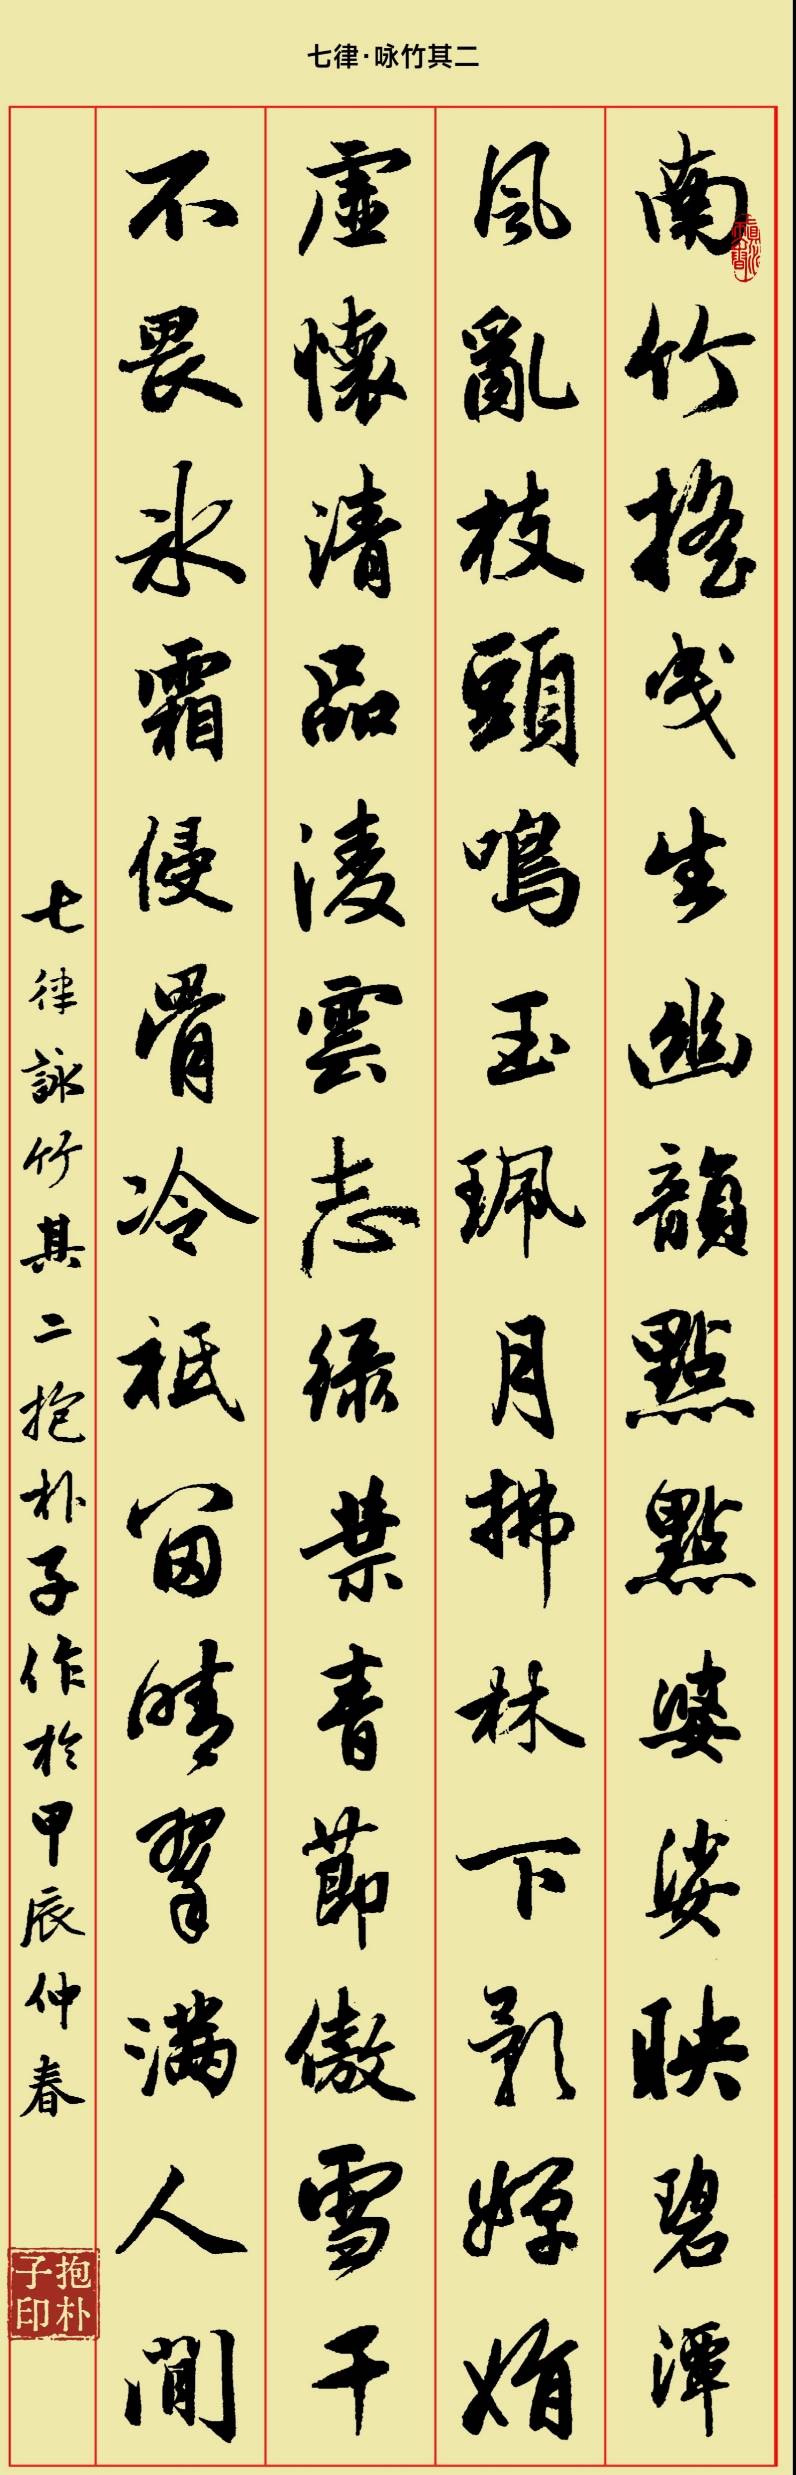 七律·咏竹其二
南竹搖曳生幽韻點點婆娑映碧潭
風亂枝頭鳴玉珮月拂林下影婷娟
虛懷清品凌雲志綠葉青節傲雪干
不畏冰霜侵骨冷祇留晴翠滿人間
七律詠竹其二抱朴子作於甲辰仲春
抱朴子印